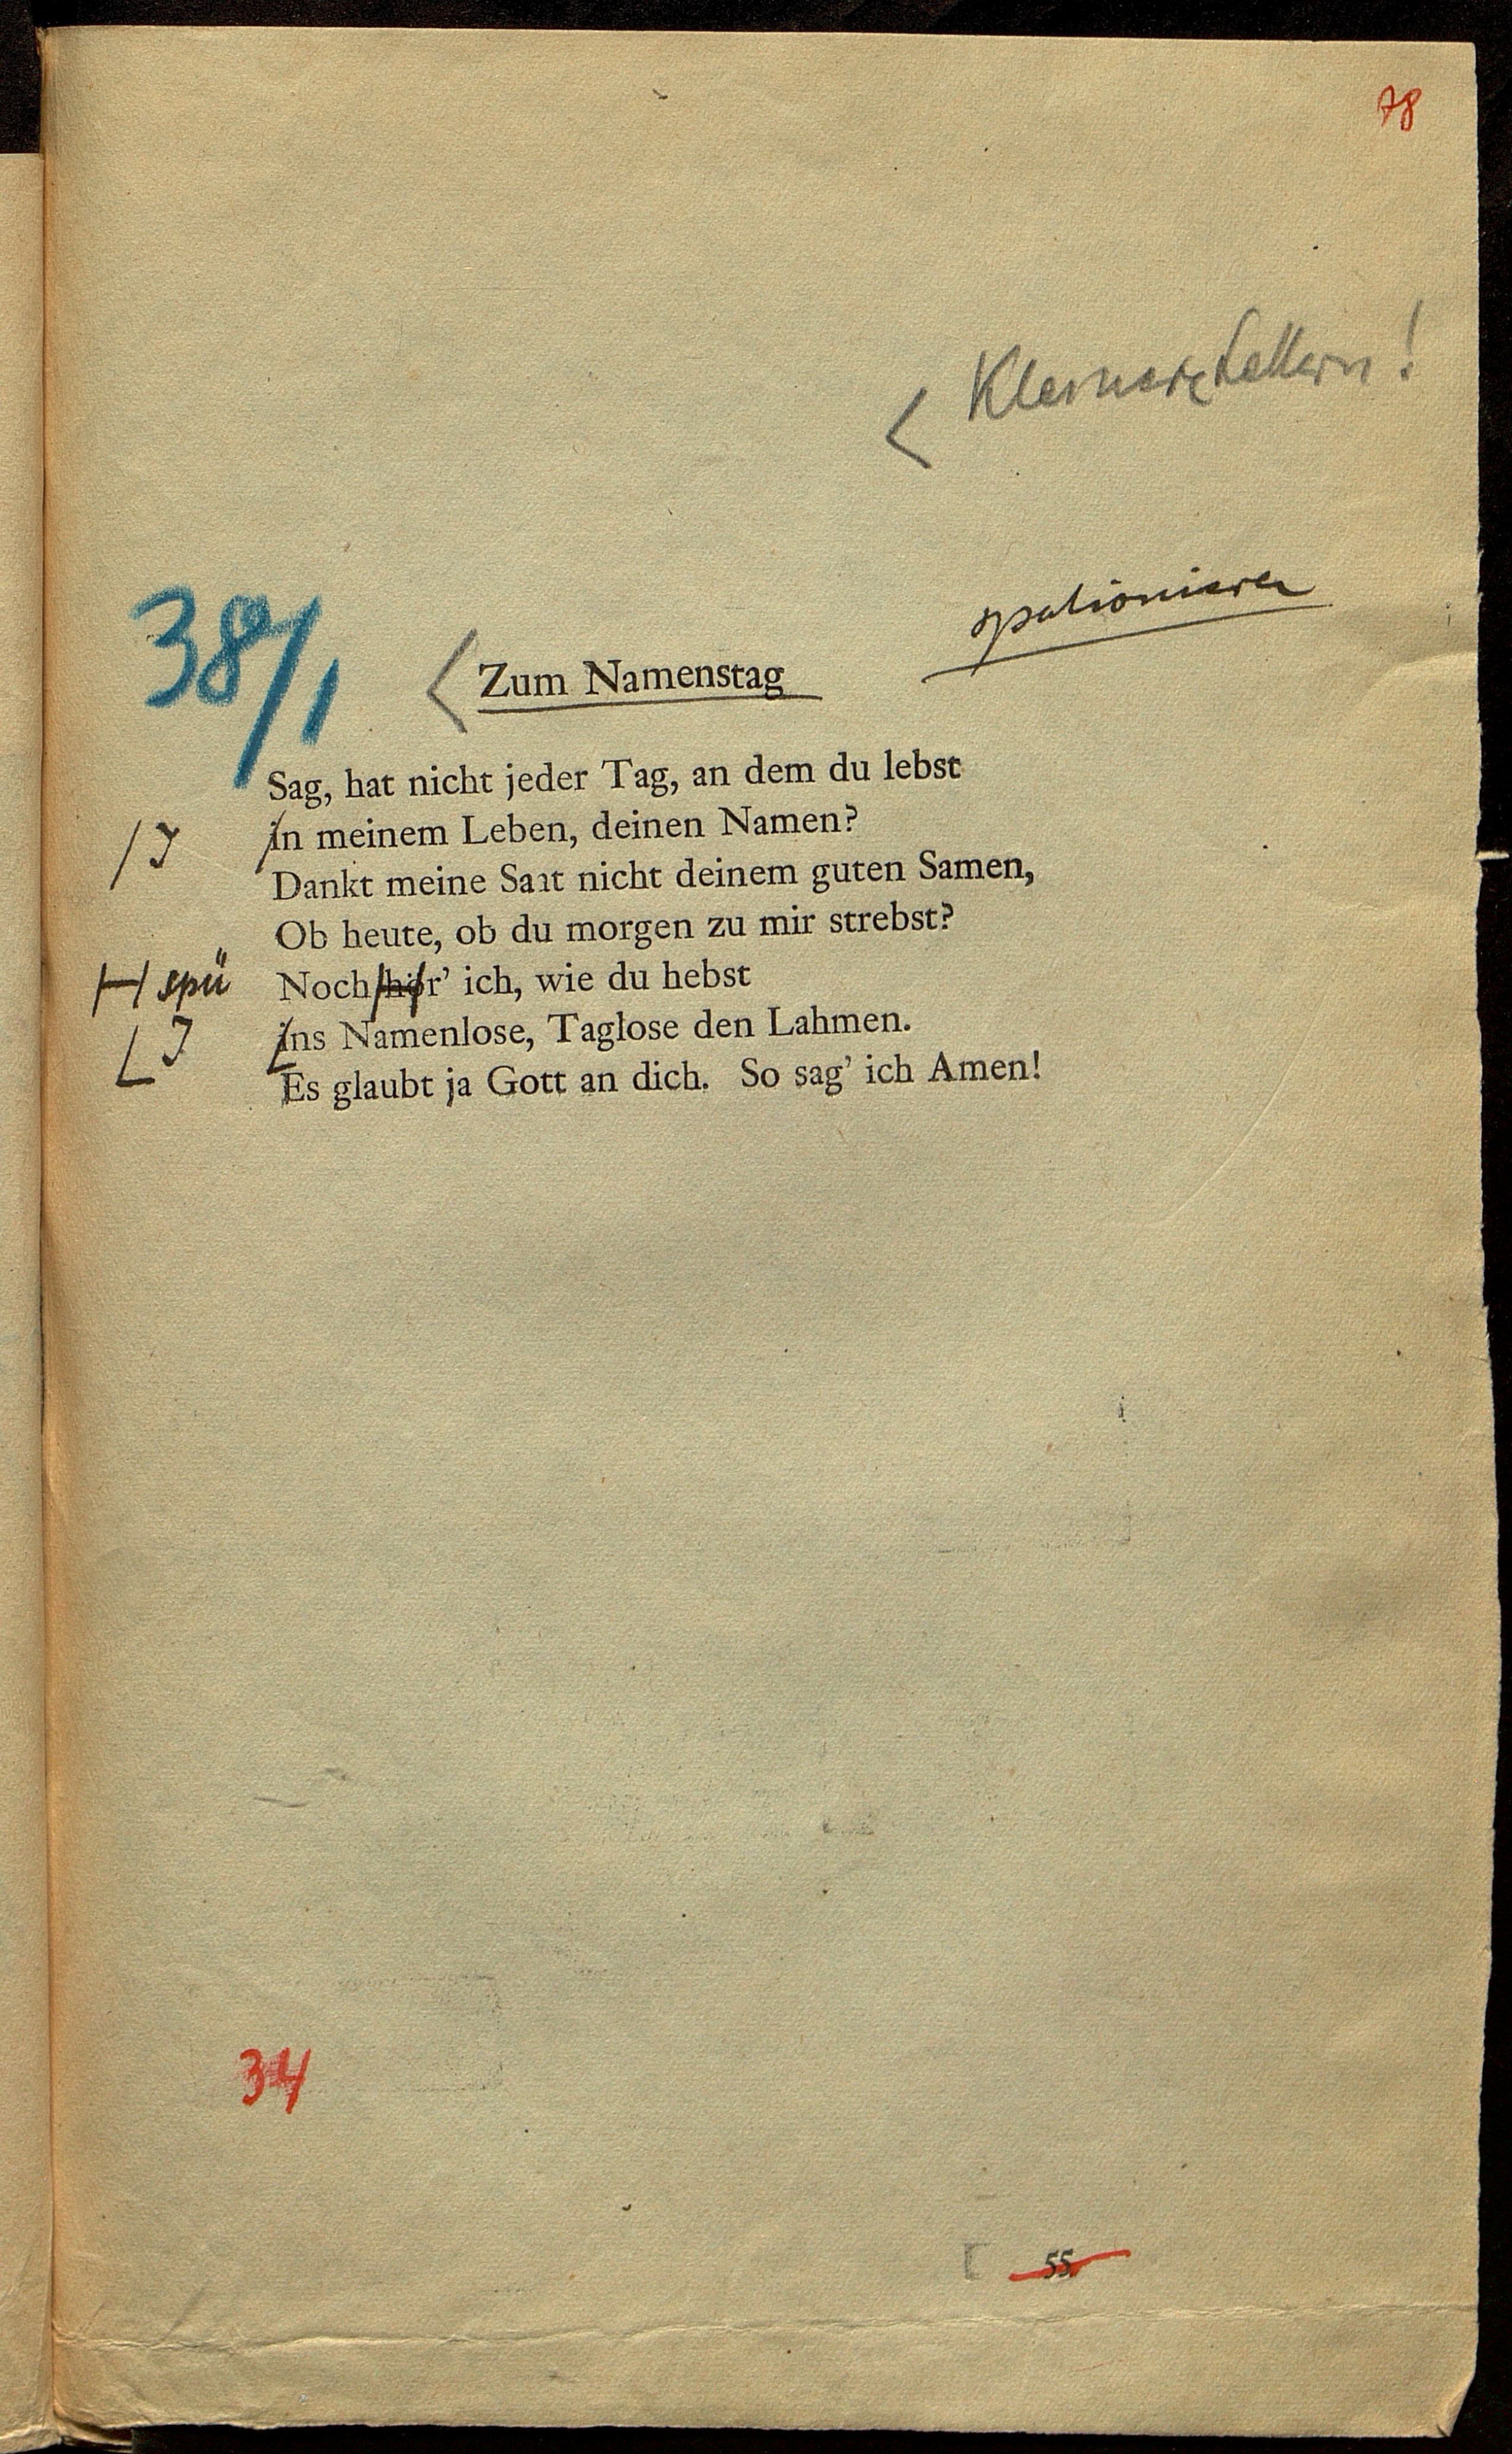 78
< Kleinere Lettern!
spationieren
38/1
< Zum Namenstag
Sag, hat nicht jeder Tag, an dem du lebst
/J in meinem Leben, deinen Namen?
Dankt meine Saat nicht deinem guten Samen,
Ob heute, ob du morgen zu mir strebst?
H spü Noch hör’ ich, wie du hebst
L J ins Namenlose, Taglose den Lahmen.
Es glaubt ja Gott an dich. So sag’ ich Amen!
34
[ 55